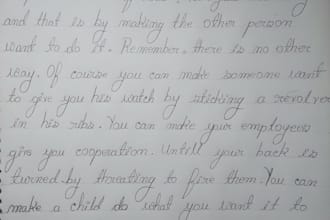 and that is by making the other person
want to do it. Remember, there is no other
way. Of course you can make someone want
to give you his watch by sticking a revolver
in his ribs. You can make your employees
give you cooperation. Untill your back is
turned by threating to fire them. You can
make a child do what you want it to